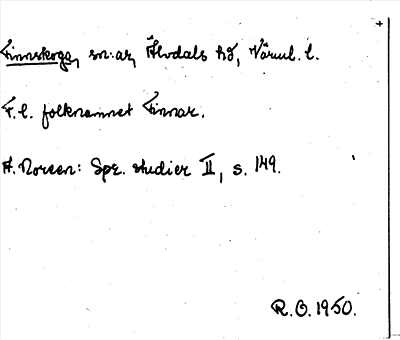 Finnskoga, sn:ar, Älvdals hd, Värml. l.
F.l. folknamnet Finnar.
A. Noreen: Spr. studier II, s. 149.
R.O. 1950.